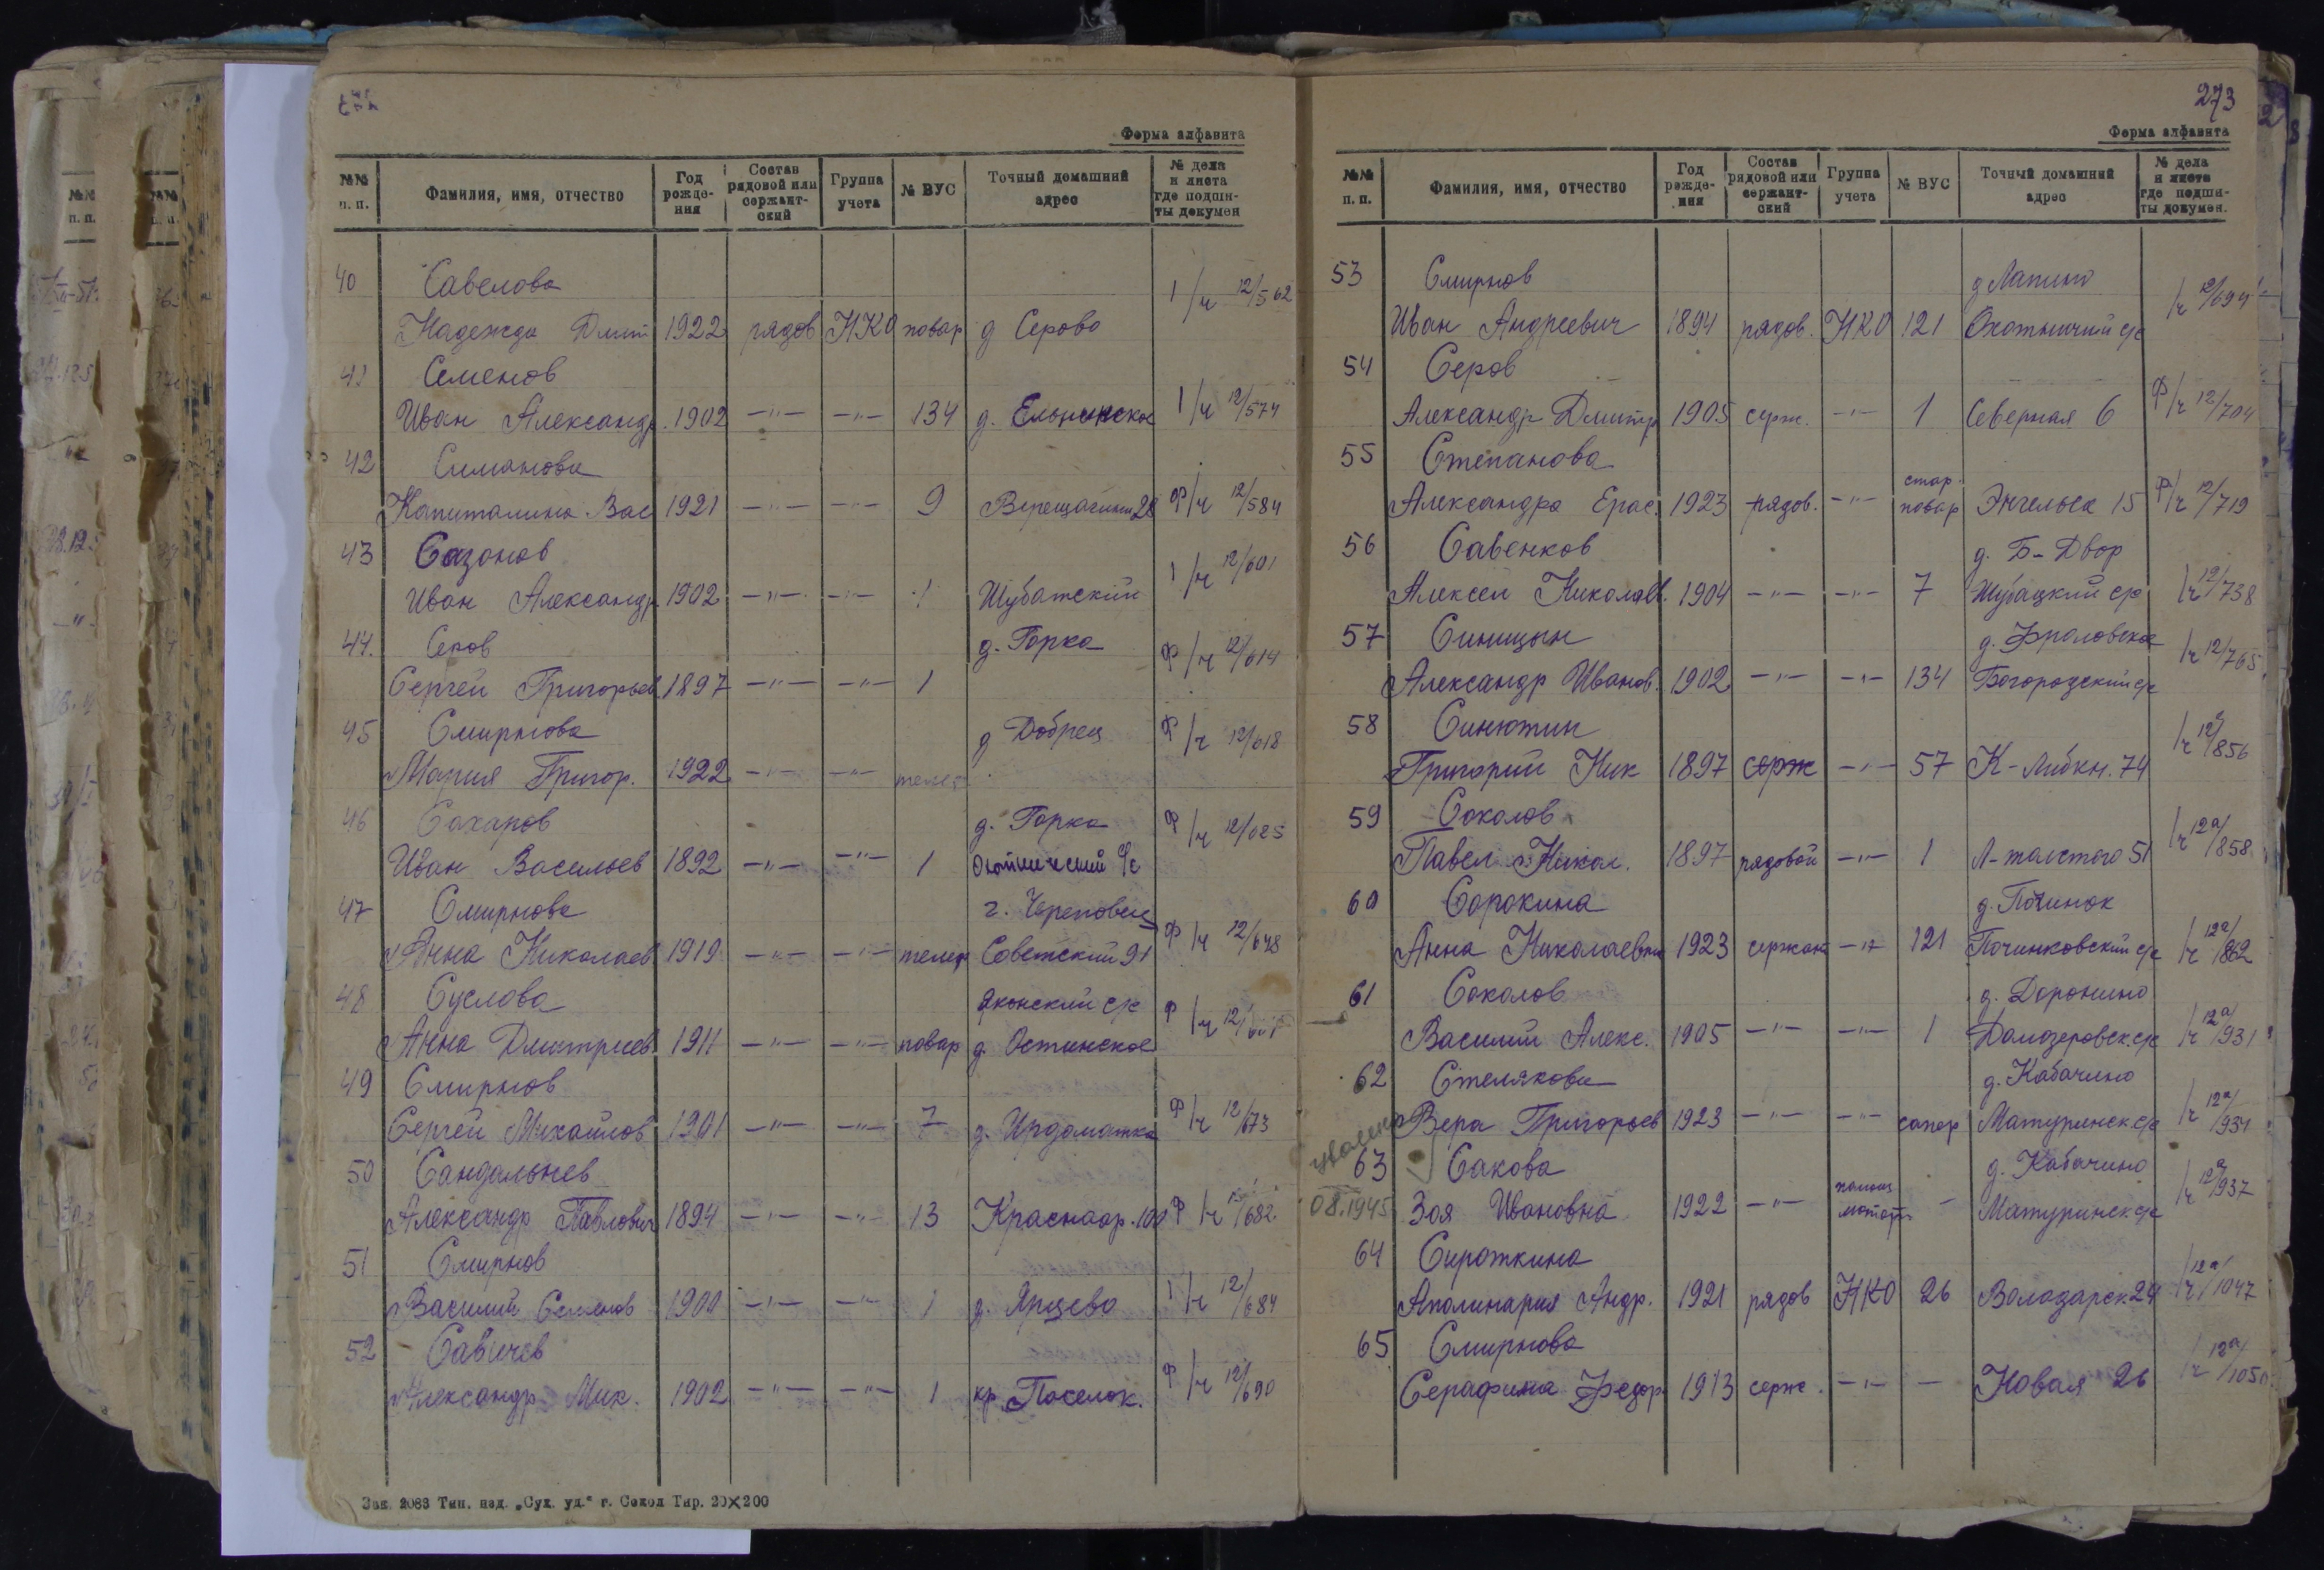 Форма алфавита
№№ п. п. Фамилия, имя, отчество Год рождения Состав рядовой или сержантский Группа учета № ВУС Точный домашний адрес № дела и листа где подшиты докумен
40 Савелова 1/ч 12/562
Надежда Дмит 1922 рядов НКО повар д Серово
41 Семенов
Иван Александр. 1902 -"- -"- 134 д. Ельнинское 1/ч 12/574
42 Симанова
Капиталина Вас 1921 -"- -"- 9 Верещагина 28 Ф/ч 12/584
43 Сазонов 1/ч 12/601
Иван Александр 1902 -"- -"- 1 Шубатский
44. Серов д. Горка Ф/ч 12/614
Сергей Григорьев 1897 -"- -"- 1
45 Смирнова д Добрец Ф/ч 12/618
Мария Григор. 1922 -"- -"-
46 Сахаров д. Горка Ф/ч 12/625
Иван Васильев 1892 -"- -"- 1 с/с
47 Смирнова г. Череповец
Анна Николаев 1919 -"- -"- телеф Советский 91 Ф/ч 12/648
48 Суслова с/с
Анна Дмитриев 1911 -"- -"- повар д. Остинское Ф/ч
49 Смирнов
Сергей Михайлов 1901 -"- -"- 7 д. Ирдоматка Ф/ч 12/673
50 Сандальнев
Александр Павлович 1894 -"- -"- 13 Красноар. 100 Ф/ч 12/682
51 Смирнов
Василий Семенов 1900 -"- -"- 1 д. Ярцево 1/ч 12/684
52 Савичев
Александр Мих. 1902 -"- -"- 1 кр Поселок. Ф/ч 12/690
Зак. 2083 Тип. изд. „Сух. уд.“ г. Сокол Тир. 20×200
273
Форма алфавита
№№ п. п. Фамилия, имя, отчество Год рождения Состав рядовой или сержантский Группа учета № ВУС Точный домашний адрес № дела и листа где подшиты докумен.
53 Смирнов д Лапино 1/ч 12/694
Иван Андреевич 1894 рядов. НКО 121 Охотничий с/с
54 Серов
Александр Дмитр 1905 серж. -"- 1 Северная 6 Ф/ч 12/704
55 Степанова
Александра Ерас. 1923 рядов. -"- стар. повар Энгельса 15 Ф/ч 12/719
56 Савенков д. Б-Двор
Алексей Николаев. 1904 -"- -"- 7 Шубацкий с/с 1/ч 12/738
57 Синицын д. Фроловское 1/ч 12/765
Александр Иванов. 1902 -"- -"- 134 Богородский с/с
58 Синютин 1/ч 12а/856
Григорий Ник 1897 серж -"- 57 К-Либкн. 74
59 Соколов
Павел Никол. 1897 рядовой -"- 1 Л-толстого 51 1/ч 12а/858
60 Сорокина д. Починок
Анна Николаевна 1923 сержан -"- 121 Починковский с/с 1/ч 12а/862
61 Соколов д. Доронино
Василий Алекс. 1905 -"- -"- 1 Домозеровск. с/с 1/ч 12а/931
62 Стелякова д. Кабачино
Вера Григорьев 1923 -"- -"- сапер Матуринск. с/с 1/ч 12а/934
63 Сакова д. Кабачино 1/ч 12а/937
08.1945 Зоя Ивановна 1922 -"- - Матуринск с/с
64 Сироткина
Аполинария Андр. 1921 рядов НКО 26 Володарск. 24 1/ч 12а/1047
65 Смирнова
Серафима Федор 1913 серж. -"- - Новая 26 1/ч 12а/1050